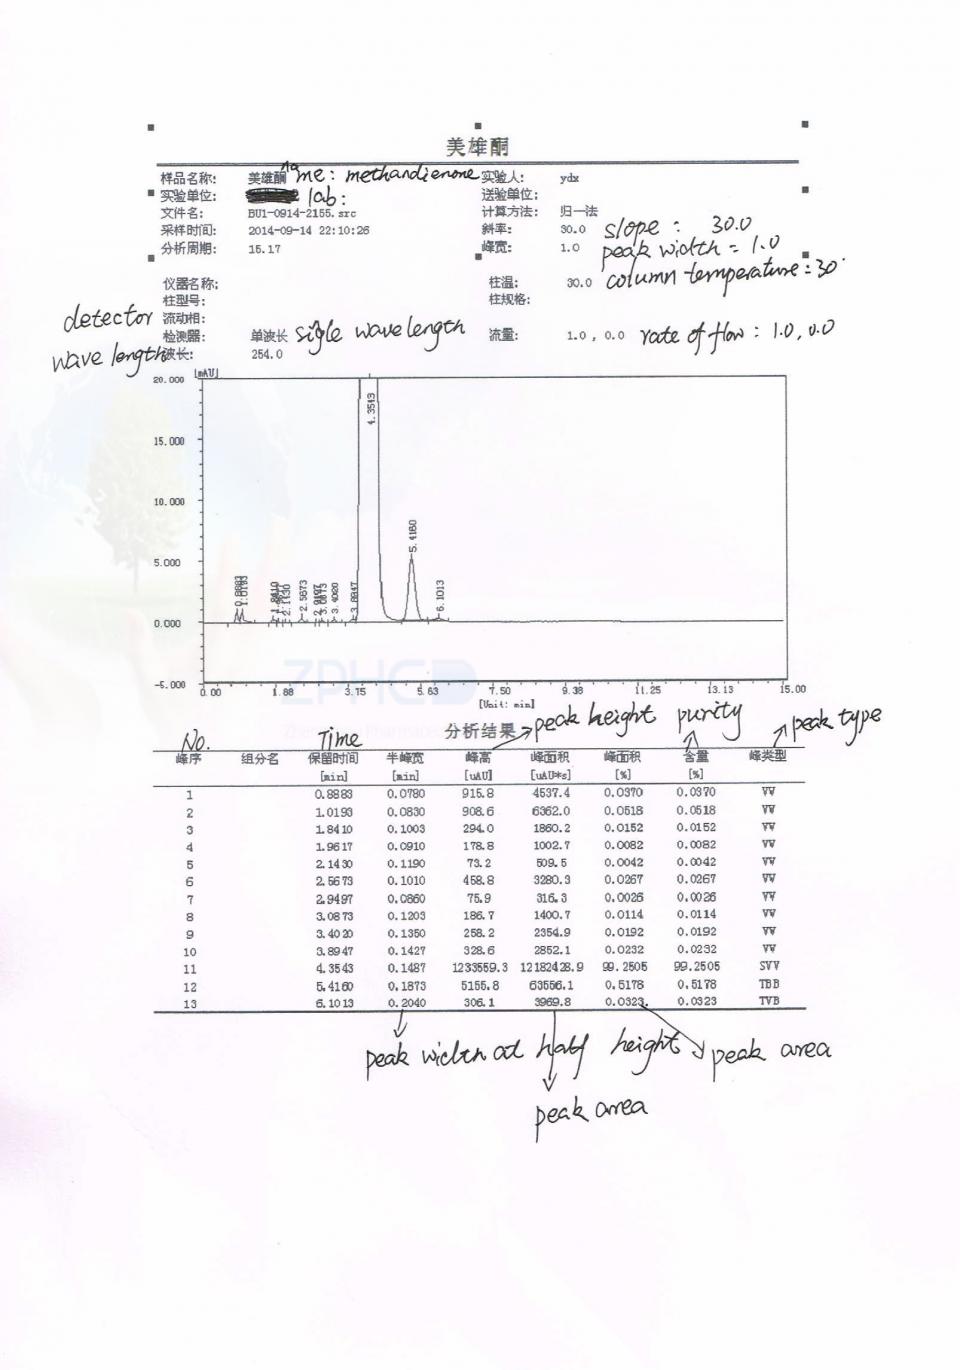 美雄酮
样品名称: 美雄酮 name: methandienone 实验人: ydx
实验单位: lab: 送验单位:
文件名: BU1-0914-2155.src 计算方法: 归一法
采样时间: 2014-09-14 22:10:26 斜率: 30.0 slope: 30.0
分析周期: 15.17 峰宽: 1.0 peak width = 1.0
仪器名称: 柱温: 30.0 column temperature: 30
柱型号: 柱规格:
detector 流动相:
检测器: 单波长 sigle wavelength 流量: 1.0, 0.0 rate of flow: 1.0, 0.0
wave length 波长: 254.0
[mAU]
20.000
15.000
10.000
5.000
0.000
-5.000
0.8883 1.0193 1.8410 2.1430 2.5673 2.9497 3.0873 3.4020 3.8947 4.3543 5.4160 6.1013
0.00 1.88 3.15 5.63 7.50 9.38 11.25 13.13 15.00
[Unit: min]
ZPHC
分析结果 peak height purity peak type
No. Time
峰序 组分名 保留时间 半峰宽 峰高 峰面积 峰面积 含量 峰类型
[min] [min] [uAU] [uAU*s] [%] [%]
1 0.8883 0.0780 915.8 4537.4 0.0370 0.0370 VV
2 1.0193 0.0830 908.6 6362.0 0.0518 0.0518 VV
3 1.8410 0.1003 294.0 1860.2 0.0152 0.0152 VV
4 1.9617 0.0910 178.8 1002.7 0.0082 0.0082 VV
5 2.1430 0.1190 73.2 509.5 0.0042 0.0042 VV
6 2.5673 0.1010 458.8 3280.3 0.0267 0.0267 VV
7 2.9497 0.0860 75.9 316.3 0.0026 0.0026 VV
8 3.0873 0.1203 186.7 1400.7 0.0114 0.0114 VV
9 3.4020 0.1350 258.2 2354.9 0.0192 0.0192 VV
10 3.8947 0.1427 328.6 2852.1 0.0232 0.0232 VV
11 4.3543 0.1487 1233559.3 12182428.9 99.2505 99.2505 SVV
12 5.4160 0.1873 5155.8 63556.1 0.5178 0.5178 TBB
13 6.1013 0.2040 306.1 3969.8 0.0323 0.0323 TVB
peak width at half height peak area
peak area